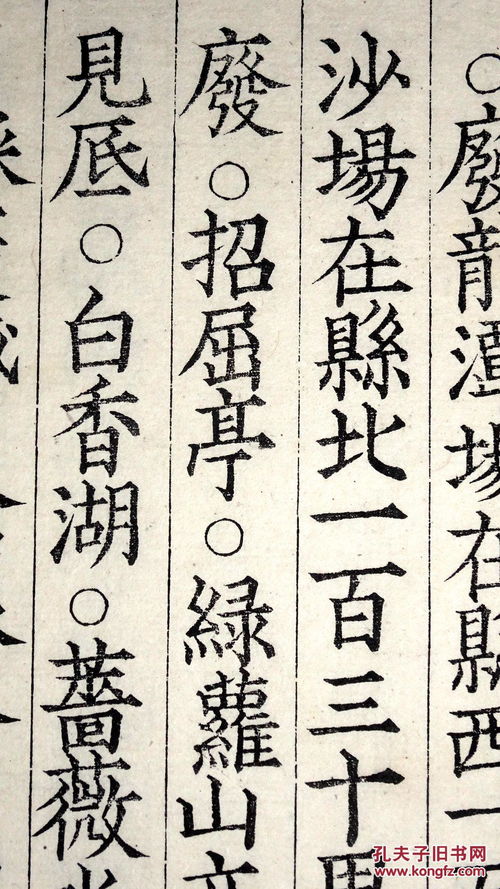 ○廢龍潭場在縣西一
沙場在縣北一百三十里
廢○招屈亭○綠蘿山
見底○白香湖○薔薇
孔夫子旧书网
www.kongfz.com